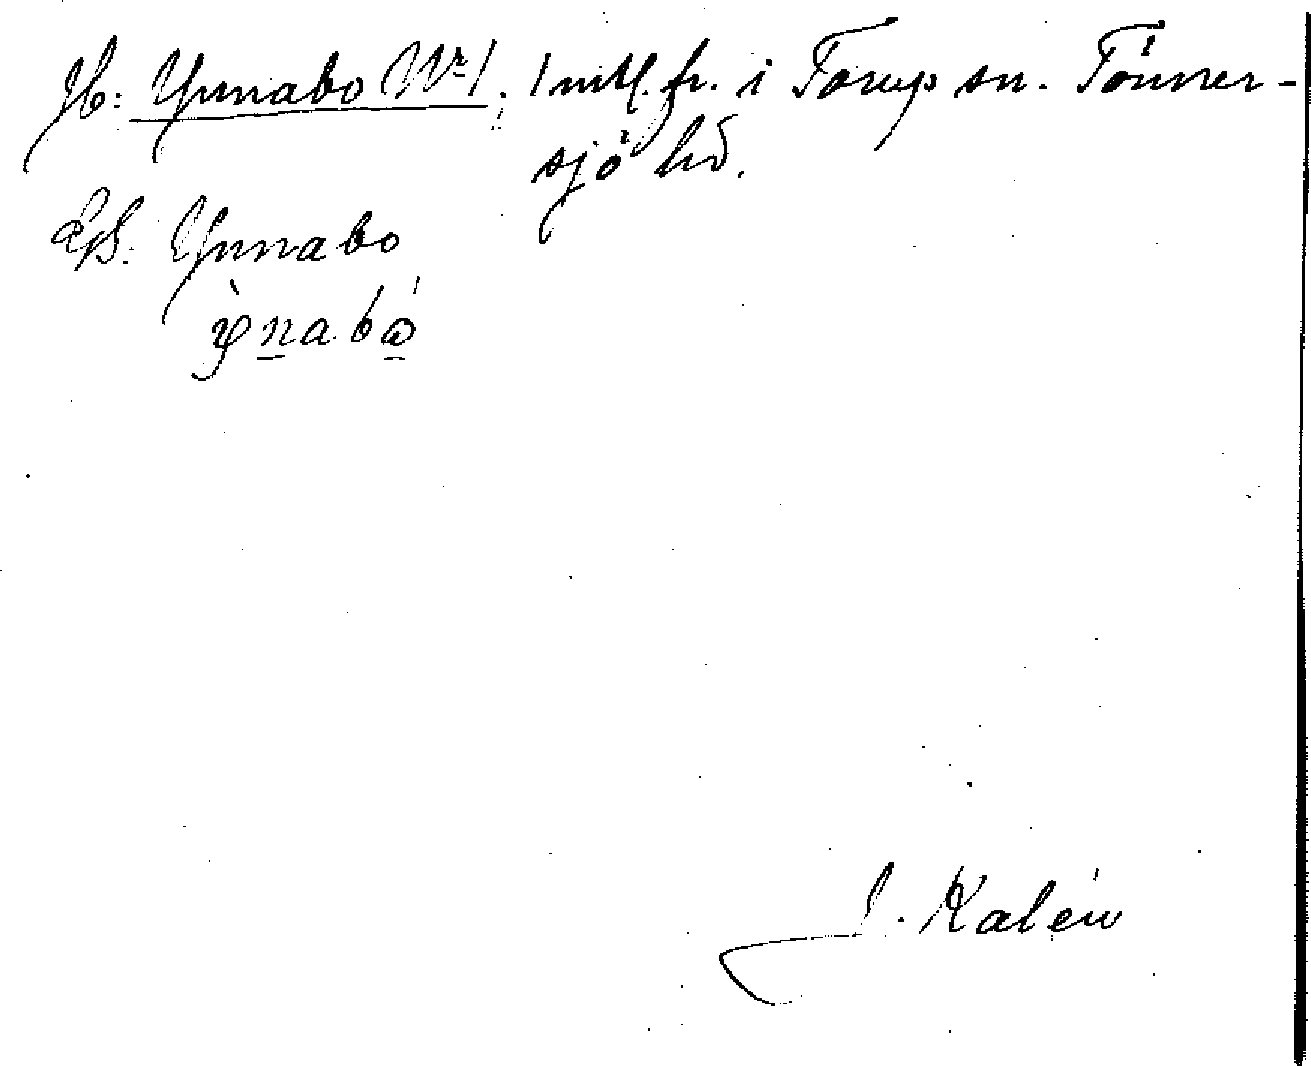 Jb: Ynnabo Nr 1. 1 mtl. fr. i Torup sn. Tönner-
sjö hd.
Ynnabo
J. Kalén